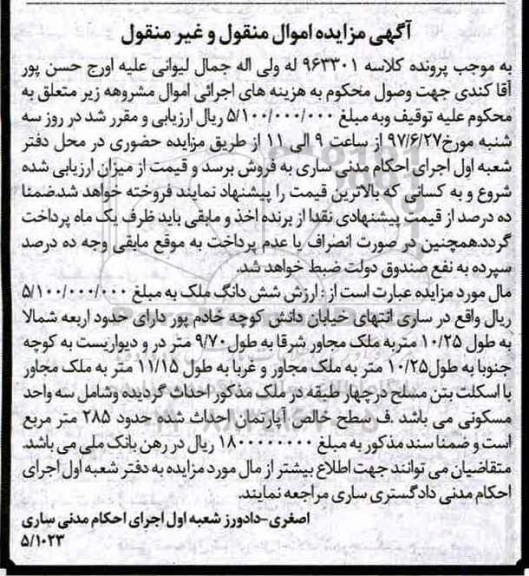 آگهی مزایده اموال منقول و غیر منقول
به موجب پرونده کلاسه ۹۶۳۳۰۱ له ولی اله جمال لیوانی علیه اورج حسن پور
آقا کندی جهت وصول محکوم به هزینه های اجرائی اموال مشروهه زیر متعلق به
محکوم علیه توقیف وبه مبلغ ۵/۱۰۰/۰۰۰/۰۰۰ ریال ارزیابی و مقرر شد در روز سه
شنبه مورخ۹۷/۶/۲۷ از ساعت ۹ الی ۱۱ از طریق مزایده حضوری در محل دفتر
شعبه اول اجرای احکام مدنی ساری به فروش برسد و قیمت از میزان ارزیابی شده
شروع و به کسانی که بالاترین قیمت را پیشنهاد نمایند فروخته خواهد شدضمنا
ده درصد از قیمت پیشنهادی نقدا از برنده اخذ و مابقی باید ظرف یک ماه پرداخت
گردد.همچنین در صورت انصراف یا عدم پرداخت به موقع مابقی وجه ده درصد
سپرده به نفع صندوق دولت ضبط خواهد شد.
مال مورد مزایده عبارت است از : ارزش شش دانگ ملک به مبلغ ۵/۱۰۰/۰۰۰/۰۰۰
ریال واقع در ساری انتهای خیابان دانش کوچه خادم پور دارای حدود اربعه شمالا
به طول ۱۰/۲۵ متربه ملک مجاور شرقا به طول۹/۷۰ متر در و دیواریست به کوچه
جنوبا به طول۱۰/۲۵ متر به ملک مجاور و غربا به طول ۱۱/۱۵ متر به ملک مجاور
با اسکلت بتن مسلح درچهار طبقه در ملک مذکور احداث گردیده وشامل سه واحد
مسکونی می باشد .ف سطح خالص آپارتمان احداث شده حدود ۲۸۵ متر مربع
است و ضمنا سند مذکور به مبلغ ۱۸۰۰۰۰۰۰۰۰ ریال در رهن بانک ملی می باشد.
متقاضیان می توانند جهت اطلاع بیشتر از مال مورد مزایده به دفتر شعبه اول اجرای
احکام مدنی دادگستری ساری مراجعه نمایند.
اصغری-دادورز شعبه اول اجرای احکام مدنی ساری
۵/۱۰۲۳